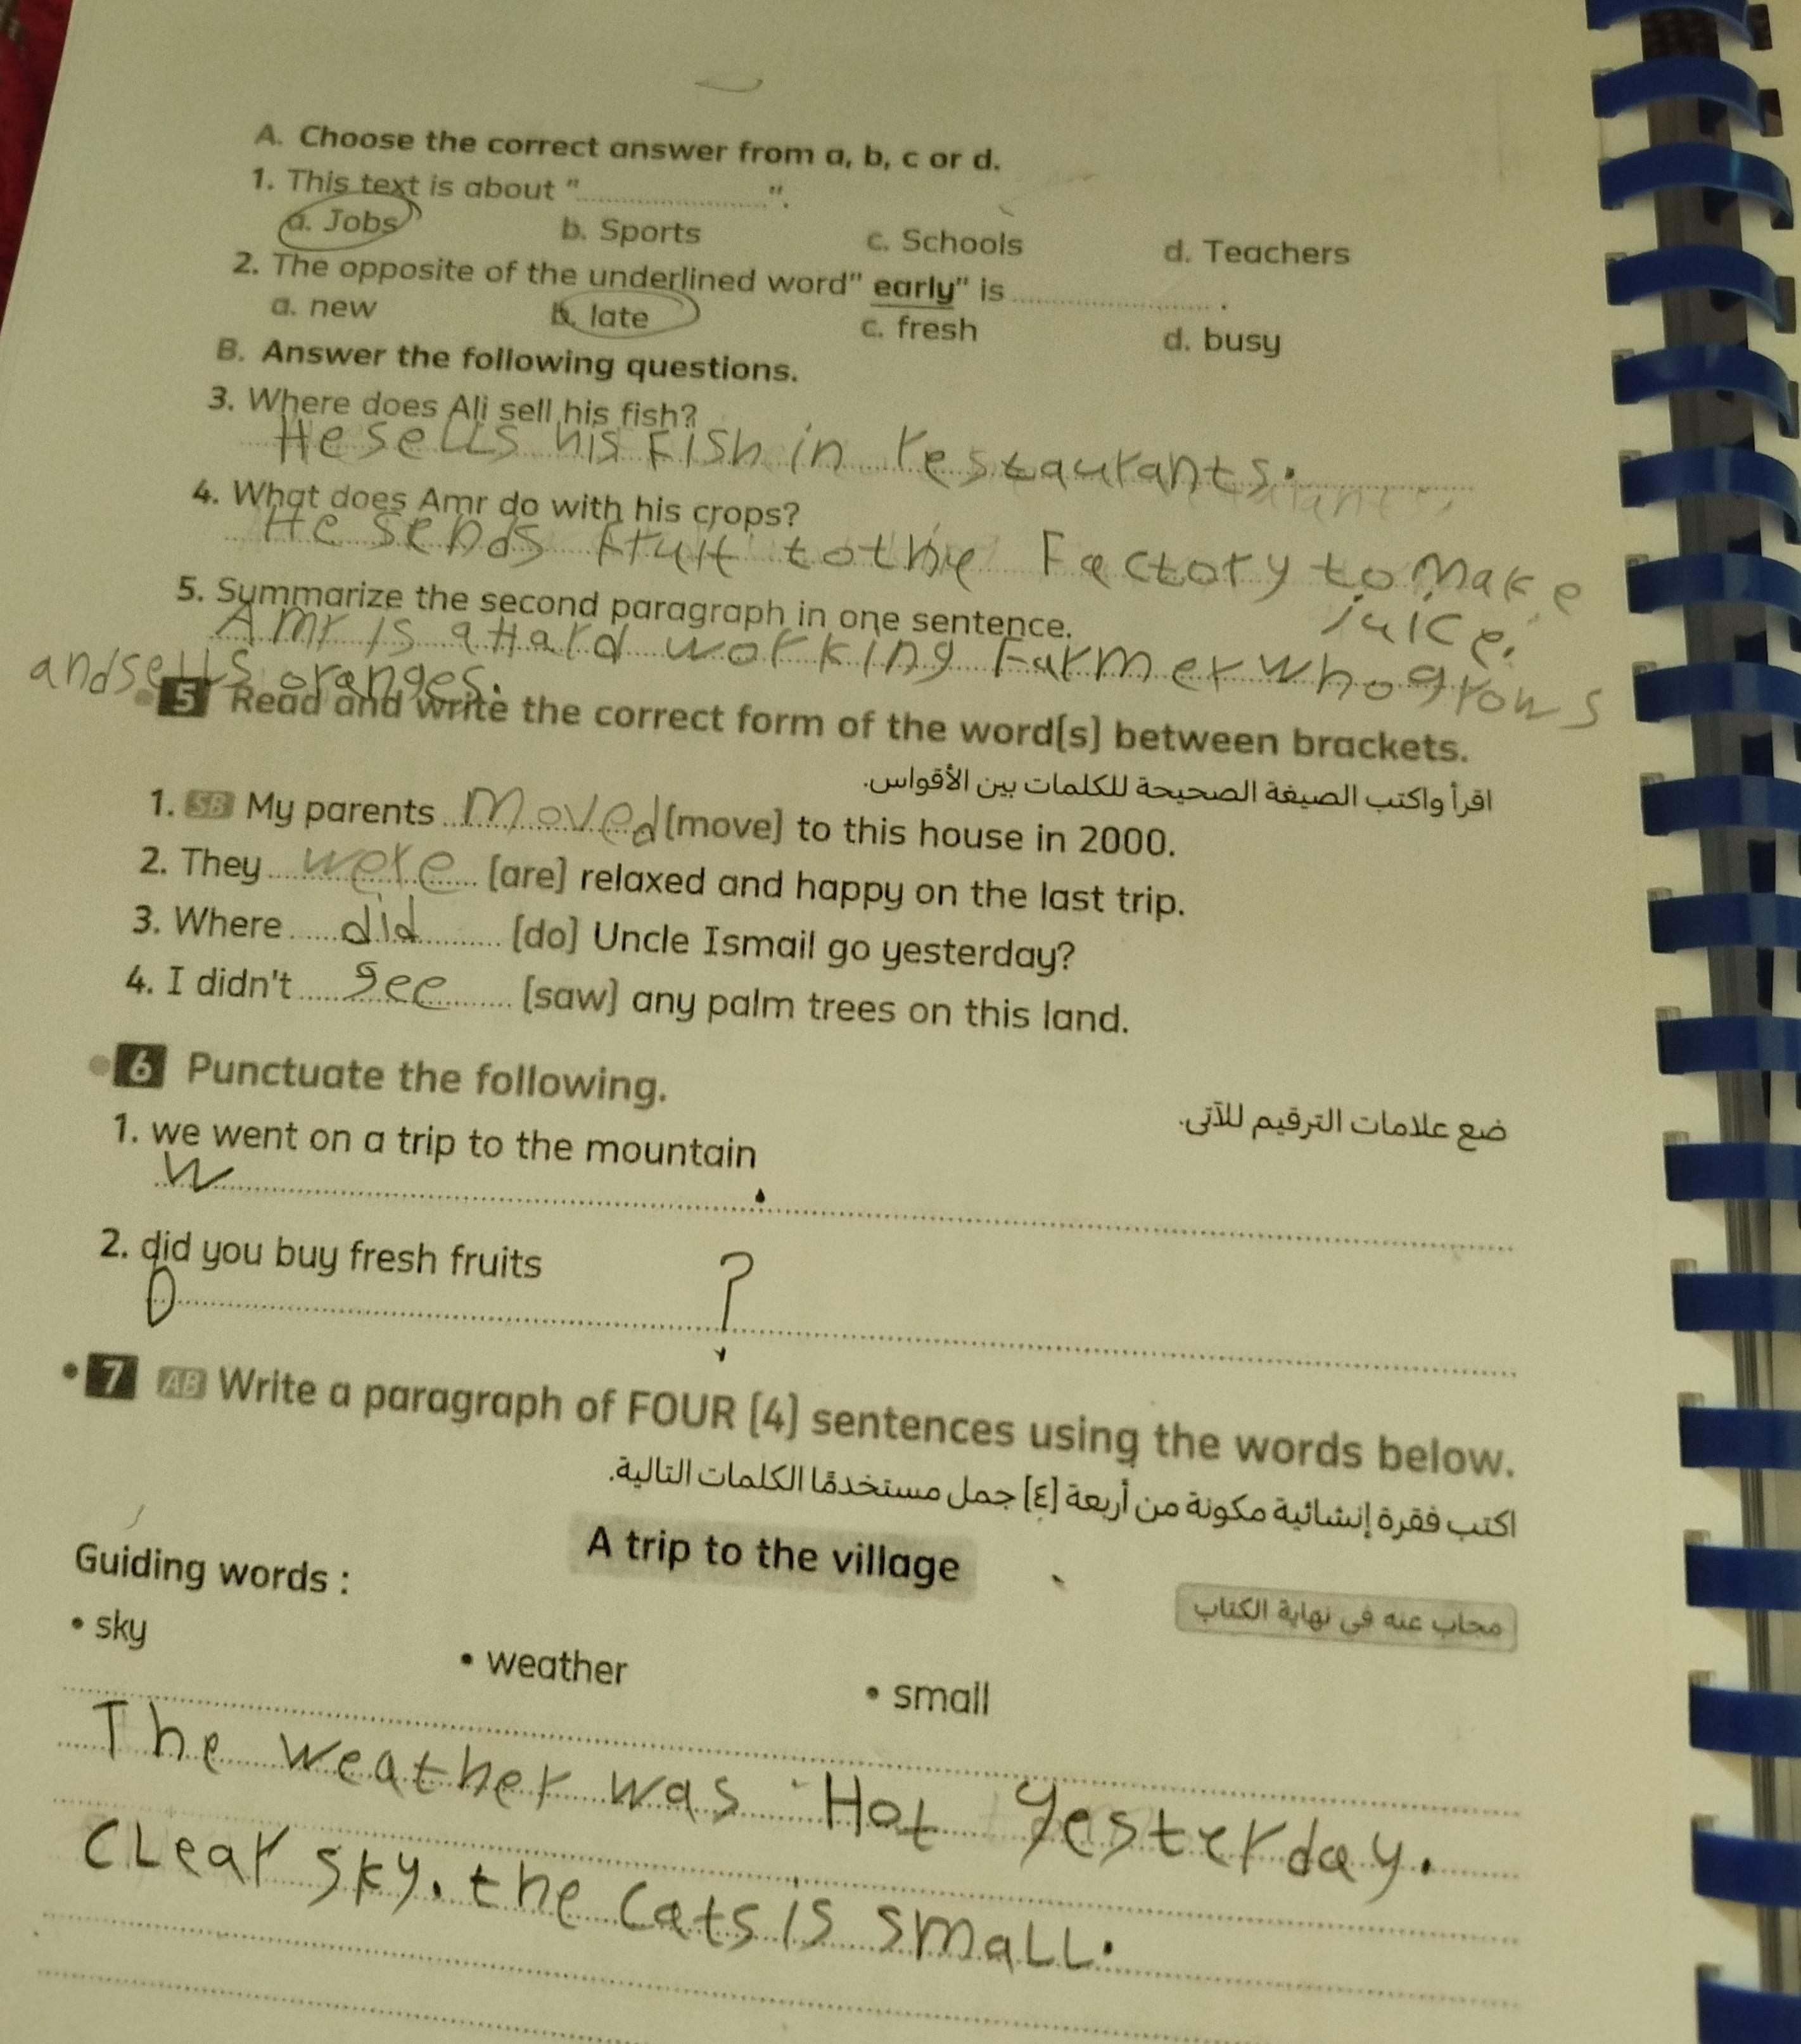 A. Choose the correct answer from a, b, c or d.
1. This text is about "....................".
a. Jobs b. Sports c. Schools d. Teachers
2. The opposite of the underlined word" early" is .................... .
a. new b. late c. fresh d. busy
B. Answer the following questions.
3. Where does Ali sell his fish?
He sells his Fish in restaurants.
4. What does Amr do with his crops?
He sends fruit to the Factory to make
juice.
5. Summarize the second paragraph in one sentence.
Amr is a Hard working Farmer who grows
and sells oranges.
5 Read and write the correct form of the word(s) between brackets.
اقرأ واكتب الصيغة الصحيحة للكلمات بين الأقواس.
1. SB My parents moved (move) to this house in 2000.
2. They were (are) relaxed and happy on the last trip.
3. Where did (do) Uncle Ismail go yesterday?
4. I didn't see (saw) any palm trees on this land.
6 Punctuate the following.
ضع علامات الترقيم للآتى.
1. we went on a trip to the mountain
W .
2. did you buy fresh fruits
D ?
7 AB Write a paragraph of FOUR (4) sentences using the words below.
اكتب فقرة إنشائية مكونة من أربعة (٤) جمل مستخدمًا الكلمات التالية.
A trip to the village
Guiding words :
مجاب عنه فى نهاية الكتاب
• sky • weather • small
The weather was Hot yesterday.
CLear sky. the cats is smaLL.